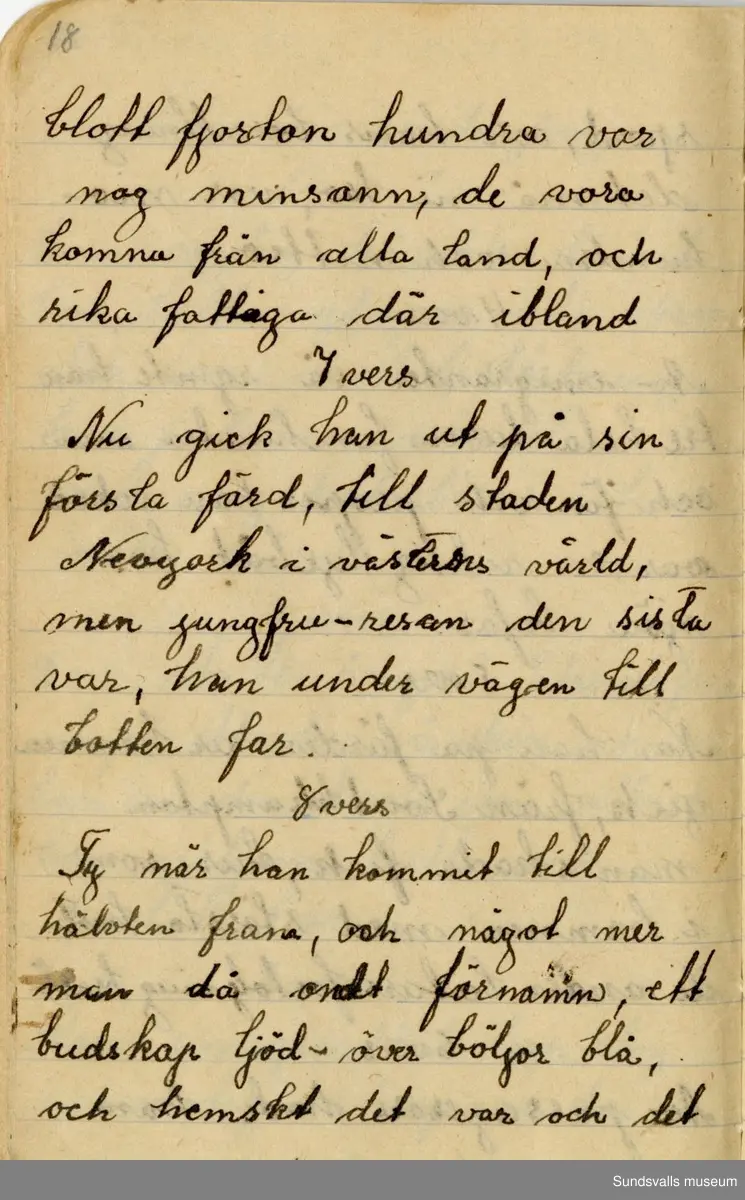 18
blott fjorton hundra var
nog minsann, de vora
komna från alla land, och
rika fattiga där ibland
7 vers
Nu gick han ut på sin
första färd, till staden
Newyork i västerns värld,
men jungfru-resan den sista
var, han under vägen till
botten far.
8 vers
Ty när han kommit till
hälvten fram, och något mer
man då ondt förnamn, ett
budskap ljöd - över böljor blå,
och hemskt det var och det
Sundsvalls museum